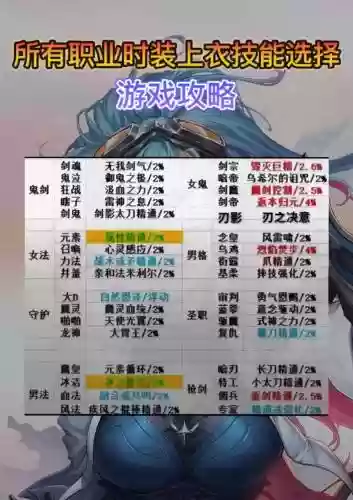 所有职业时装上衣技能选择
游戏攻略
剑魂 无我剑气/2% 剑宗 毁灭巨剑/2.5%
鬼泣 御鬼之役/2% 暗帝 乌希尔的诅咒/2%
鬼剑 狂战 汲血之力/2% 女鬼 剑魔 控制/2.5%
瞎子 雷神之息/2% 剑帝 返本归元/4%
剑鬼 剑影太刀精通/2% 刃影 刃之决意
元素 属性精通/2% 念皇 风雷啸/2%
女法 召唤 心灵感应/2% 男格 烈焰焚步/4%
力法 战术 精通/2% 街霸 爪精通/2%
井量 亲和法米利尔/2% 基柔 摔技强化/2%
大D 自然恩泽/浮动 审判 勇气恩赐/2%
守护 血统/2% 圣职 /2%
啪啪 天使光翼/2% 式神之力/2%
龙神 大胃王/2% 复仇 精通/2%
元素循环/2% 暗刃 长刀精通/2%
男法 冰洁 枪剑 特工 小太刀精通/2%
血法 /2% 佣兵 重剑精通/2.5%
风法 疾风之棍棒精通/2% 专家 强化/2%